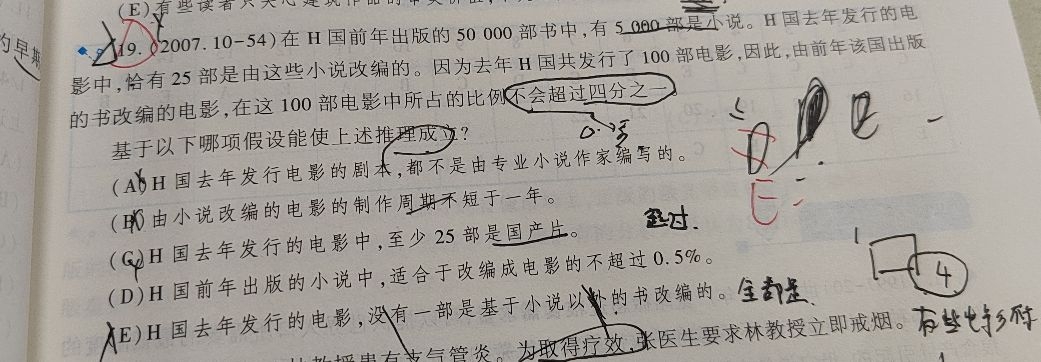 (E)有些读者只关心建筑作品的审美价值,
的早期
19. (2007.10-54)在 H 国前年出版的 50 000 部书中,有 5 000 部是小说。H 国去年发行的电
影中,恰有 25 部是由这些小说改编的。因为去年 H 国共发行了 100 部电影,因此,由前年该国出版
的书改编的电影,在这 100 部电影中所占的比例不会超过四分之一。
基于以下哪项假设能使上述推理成立?
(A)H 国去年发行电影的剧本,都不是由专业小说作家编写的。
(B)由小说改编的电影的制作周期不短于一年。
(C)H 国去年发行的电影中,至少 25 部是国产片。
超过.
(D)H 国前年出版的小说中,适合于改编成电影的不超过 0.5%。
1
4
(E)H 国去年发行的电影,没有一部是基于小说以外的书改编的。
全都是.
E
教授患有支气管炎。为取得疗效,张医生要求林教授立即戒烟。